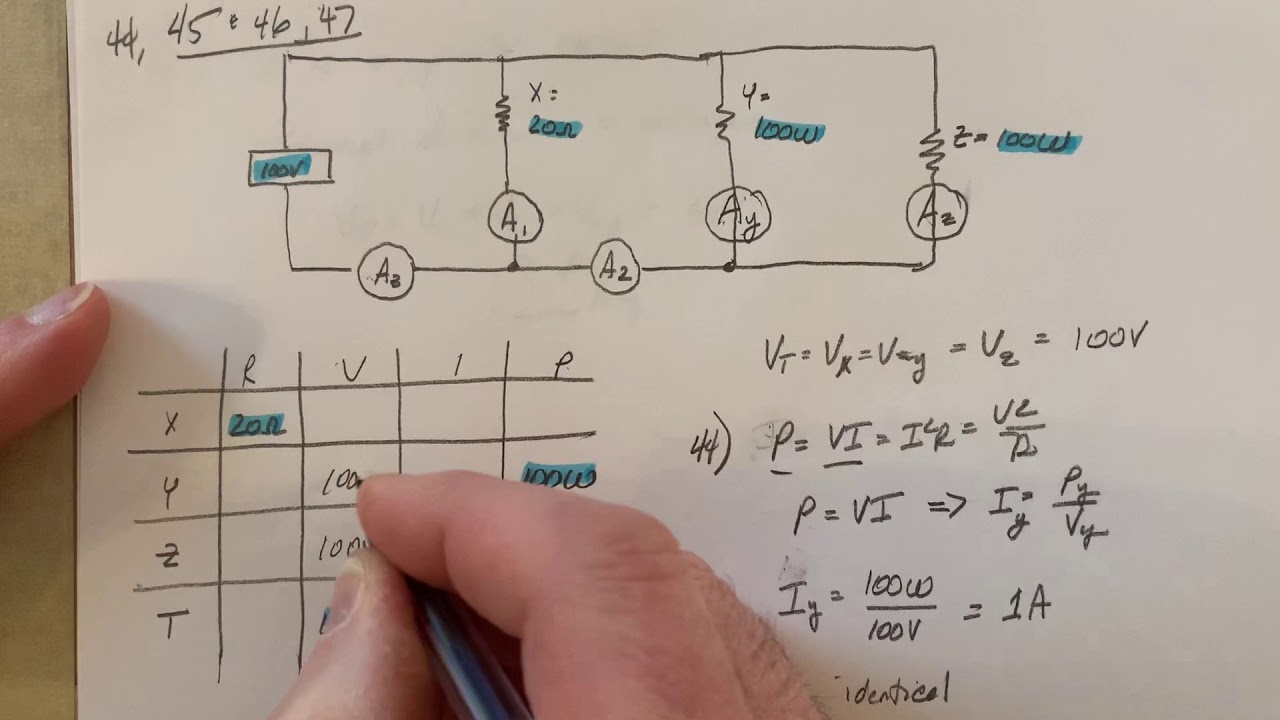 44, 45 & 46, 47
X =
20Ω
Y =
100W
Z = 100W
100V
A1
Ay
Az
A3
A2
R V I P
X 20Ω
Y 100 100W
Z 100V
T
VT = Vx = Vy = Vz = 100V
44) P = VI = I²R = V2/R
P = VI => Iy = Py/Vy
Iy = 100W/100V = 1A
identical